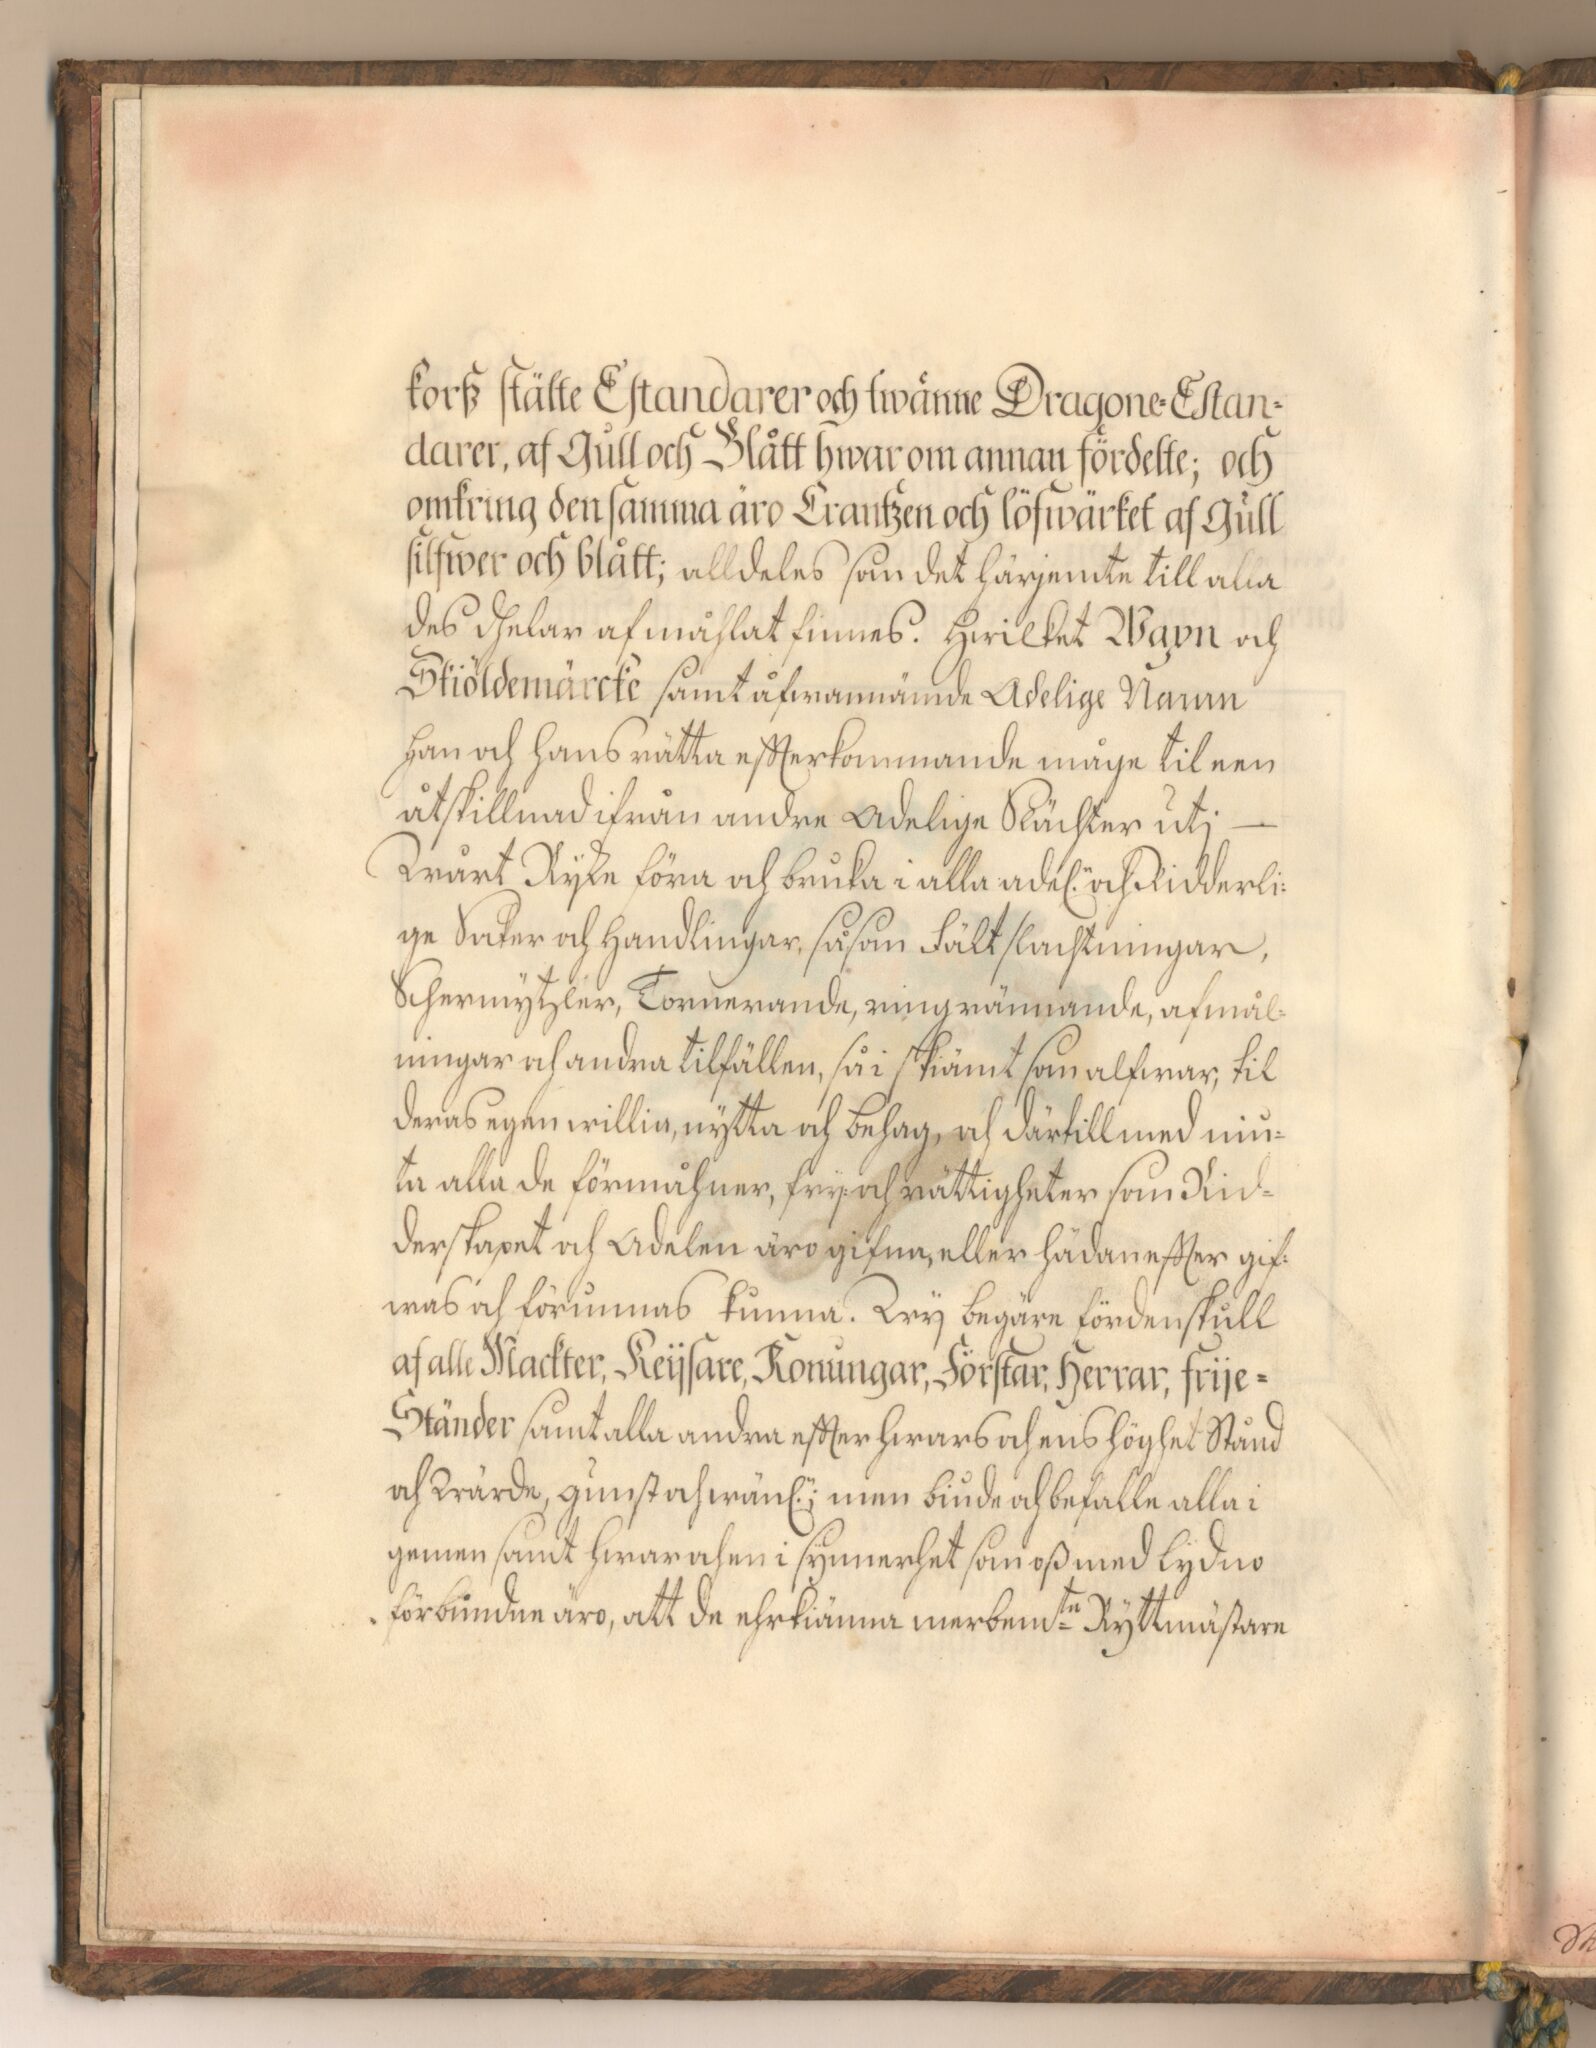 korß stälte Estandarer och twänne Dragone-Estan-
darer, af Gull och Blått hwar om annan fördelte; och
omkring den samma äro Crantzen och löfwärket af Gull
silfwer och blått; alldeles som det härjemte till alla
des dhelar afmåhlat finnes. Hwilket Wapn och
Skiöldemärcke samt åfwannämde Adelige Namn
han och hans rätta effterkommande måge til een
åtskillnad ifrån andre Adelige Slächter utj —
Wårt Ryke föra och bruka i alla adel: och Ridderli-
ge Saker och Handlingar, såsom Fältslachtningar,
Schermytzler, Tornerande, ringrännande, afmål-
ningar och andra tilfällen, så i skiämt som alfwar, til
deras egen willia, nytta och behag, och därtill med niu-
ta alla de förmåhner, frij- och rättigheter som Rid-
derskapet och Adelen äro gifna, eller hädaneffter gif-
was och förunnas kunna. Wij begäre fördenskull
af alle Mackter, Keijsare, Konungar, Förstar, Herrar, frije-
Ständer samt alla andra effter hwars och ens höghet Stånd
och Wärde, gunst och wänl:; men biude och befalle alla i
gemen samt hwar och en i synnerhet som oß med lydno
förbundne äro, att de ehrkiänna merbemte Ryttmästare